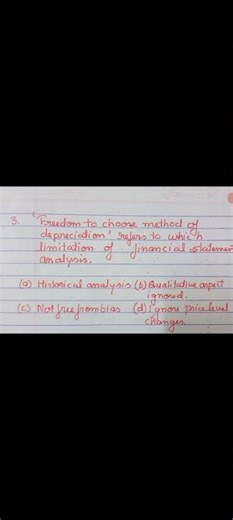 3. 'Freedom to choose method of
depreciation' refers to which
limitation of financial statement
analysis.
(a) Historical analysis (b) Qualitative aspect
ignored.
(c) Not free from bias (d) Ignore price level
changes.